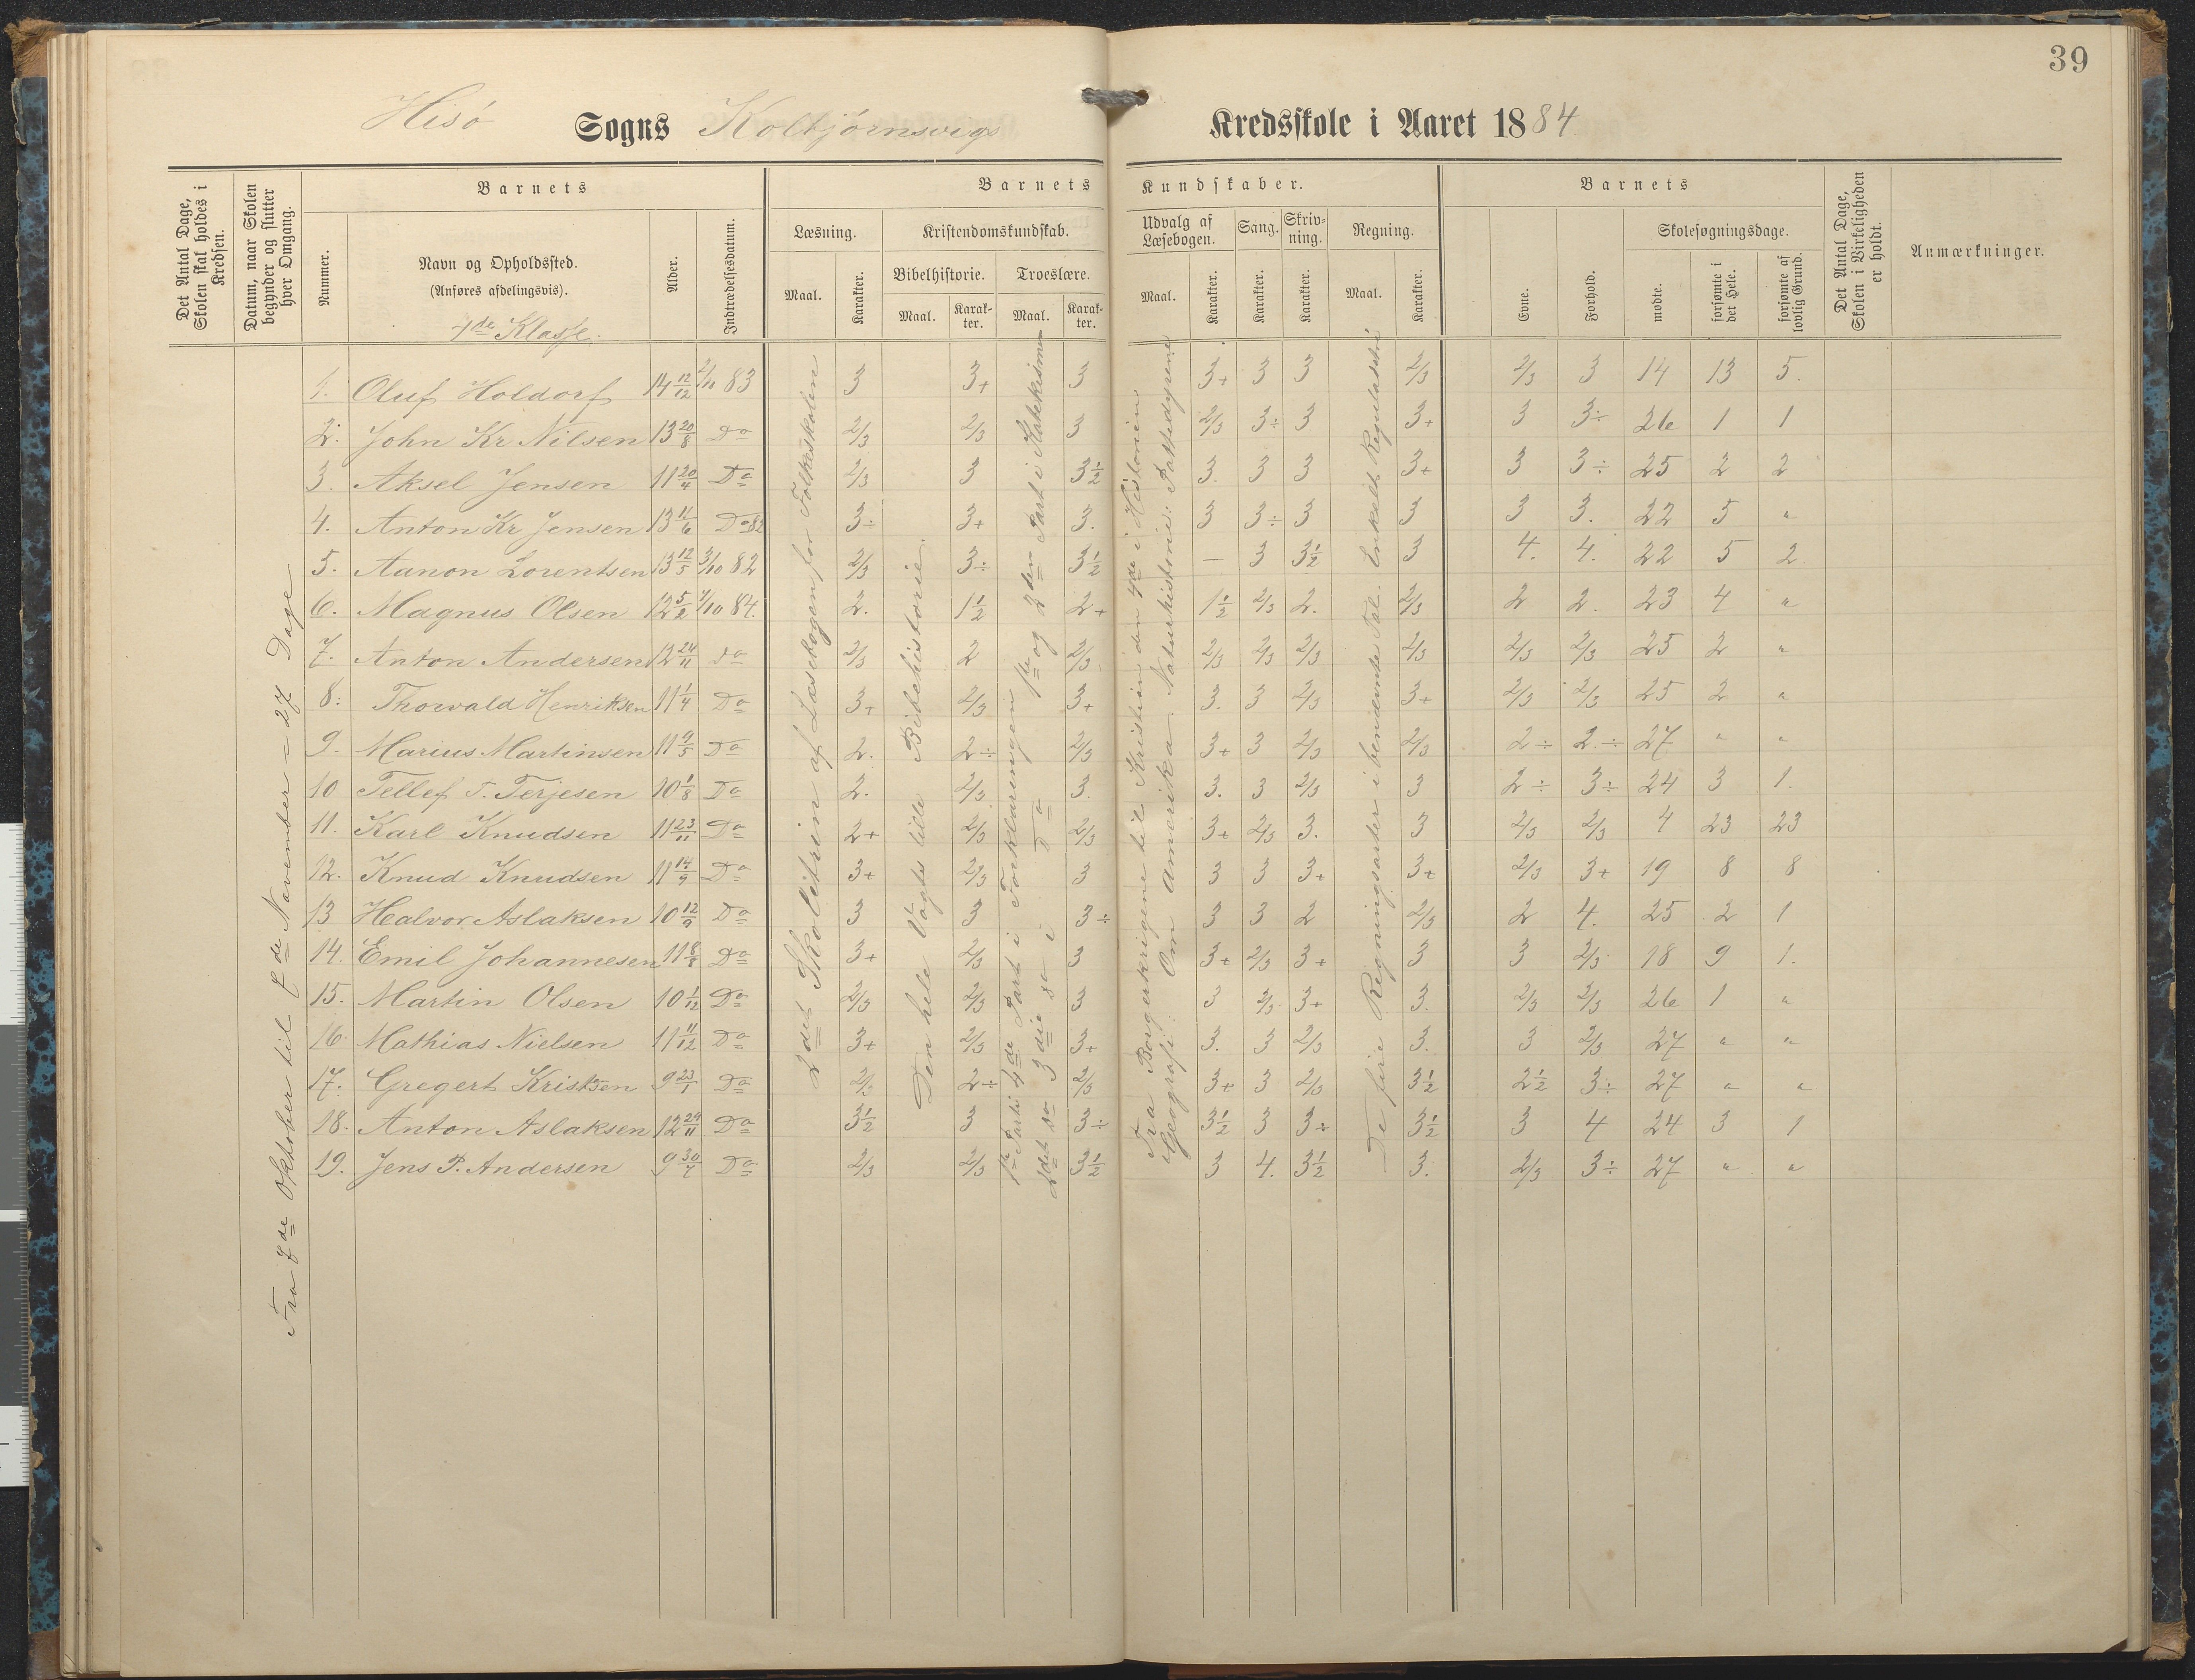 39
Hisø Sogns Kolbjørnsvigs Kredsskole i Aaret 1884
Det Antal Dage, Skolen skal holdes i Kredsen.
Datum, naar Skolen begynder og slutter hver Omgang.
Barnets
Nummer.
Navn og Opholdssted.
(Anføres afdelingsvis).
Alder.
Indtrædelsesdatum.
Barnets Kundskaber.
Læsning.
Maal.
Karakter.
Kristendomskundskab.
Bibelhistorie.
Maal.
Karakter.
Troeslære.
Maal.
Karakter.
Udvalg af Læsebogen.
Maal.
Karakter.
Sang.
Karakter.
Skrivning.
Karakter.
Regning.
Maal.
Karakter.
Barnets
Evne.
Forhold.
Skolesøgningsdage.
mødte.
forsømte i det Hele.
forsømte af lovlig Grund.
Det Antal Dage, Skolen i Virkeligheden er holdt.
Anmærkninger.
4de Klasse.
1. Oluf Holdorf 14 12/12 2/10 83 3 3+ 3 3+ 3 3 2/3 2/3 3 14 13 5.
2. John Kr Nilsen 13 20/8 Do 2/3 2/3 3 2/3 3÷ 3 3+ 3 3÷ 26 1 1
3. Aksel Jensen 11 20/4 Do 2/3 3 3½ 3. 3 3 3+ 3 3÷ 25 2 2
4. Anton Kr Jensen 13 11/6 Do 82 3÷ 3+ 3. 3 3÷ 3 3 3 3. 22 5 "
5. Aanon Lorentsen 13 12/5 3/10 82 2/3 3÷ 3½ — 3 3½ 3 4. 4. 22 5 2
6. Magnus Olsen 12 5/2 7/10 84. 2. 1½ 2+ 1½ 2/3 2. 2/3 2 2. 23 4 "
7. Anton Andersen 12 24/11 Do 2/3 2 2/3 2/3 2/3 2/3 2/3 2/3 2/3 25 2 "
8. Thorvald Henriksen 11 1/4 Do 3+ 2/3 3+ 3. 3 2/3 3+ 2/3 2/3 25 2 "
9. Marius Martinsen 11 9/5 Do 2. 2÷ 2/3 3+ 3 2/3 2/3 2÷ 2÷ 27 " "
10 Tellef T. Terjesen 10 1/8 Do 2. 2/3 3. 3. 3 2/3 3 2÷ 3÷ 24 3 1.
11. Karl Knudsen 11 23/11 Do 2+ 2/3 2/3 3+ 2/3 3. 3 2/3 2/3 4 23 23
12. Knud Knudsen 11 14/9 Do 3+ 2/3 3 3 3 3+ 3+ 2/3 3+ 19 8 8
13 Halvor Aslaksen 10 12/9 Do 3 3 3÷ 3 3 2 2/3 2 4. 25 2 1
14. Emil Johannesen 11 8/8 Do 3+ 2/3 3 3+ 2/3 3+ 3 3 2/3 18 9 1.
15. Martin Olsen 10 1/12 Do 2/3 2/3 3 3 2/3 3+ 3. 2/3 2/3 26 1 "
16 Mathias Nielsen 11 11/12 Do 3+ 2/3 3+ 3. 3 2/3 3. 3 2/3 27 " "
17. Gregert Kristsen 9 23/1 Do 2/3 2÷ 2/3 3+ 3 2/3 3½ 2½ 3÷ 27 " "
18. Anton Aslaksen 12 29/11 Do 3½ 3 3÷ 3½ 3 3÷ 3½ 3 4 24 3 1
19. Jens P. Andersen 9 30/7 Do 2/3 2/3 3½ 3 4. 3½ 3. 2/3 3÷ 27 " "
Fra 7de Oktober til 7de November = 27 Dage
2det Skoletrin af Læsebogen for Folkeskolen
Den hele Vogts lille Bibelhistorie.
1ste Parti 4de Part i Forklaringen 1ste og 2den Part i Katekismen
2det do 3die do i Do
Fra Borgerkrigene til Kristian den 4de i Historien
i Geografi: Om Amerika. Naturhistorie: Pattedyrene
De fire Regningsarter i benævnte Tal. Enkelt Reguladetri